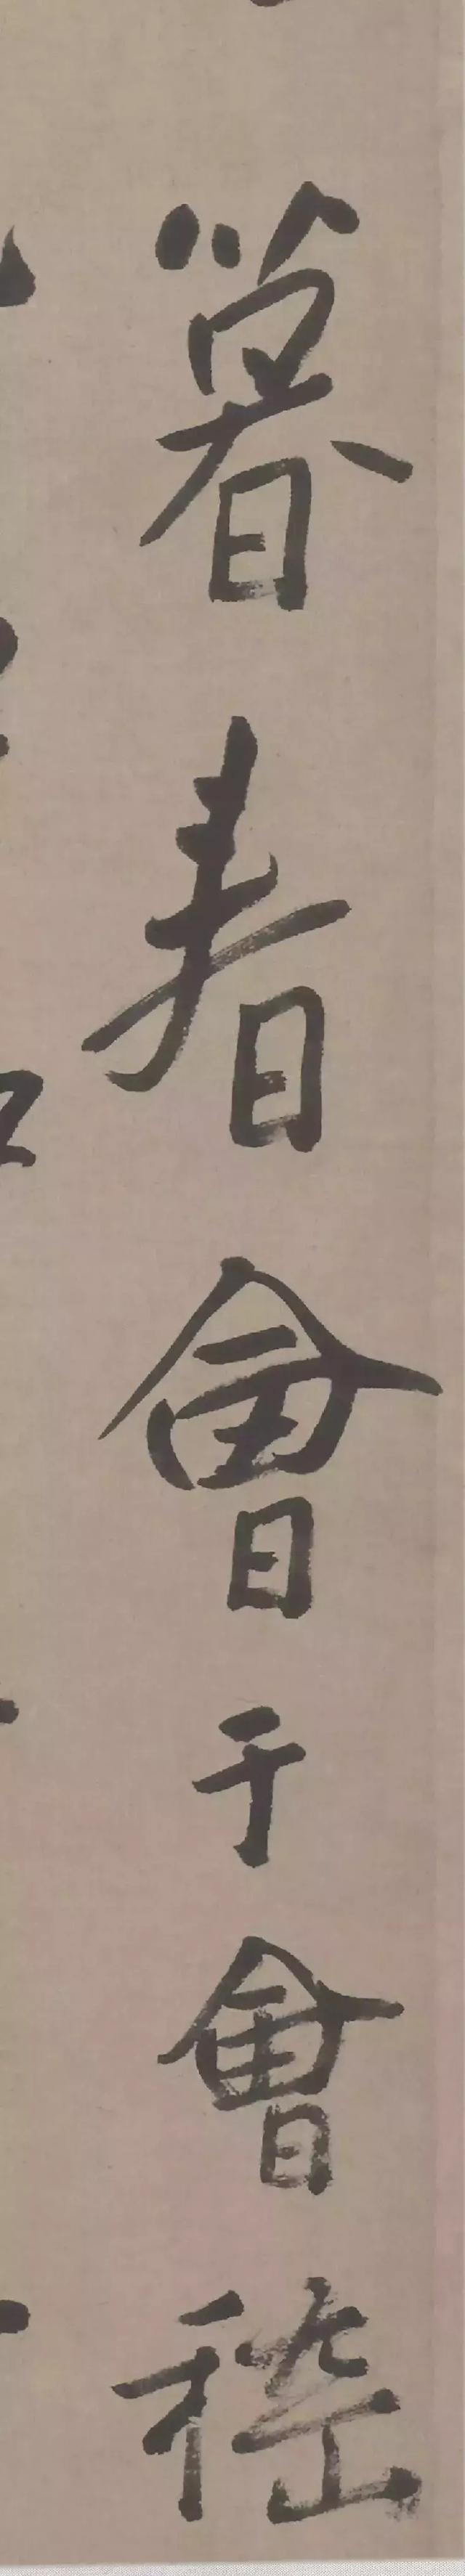 暮春會于會稽